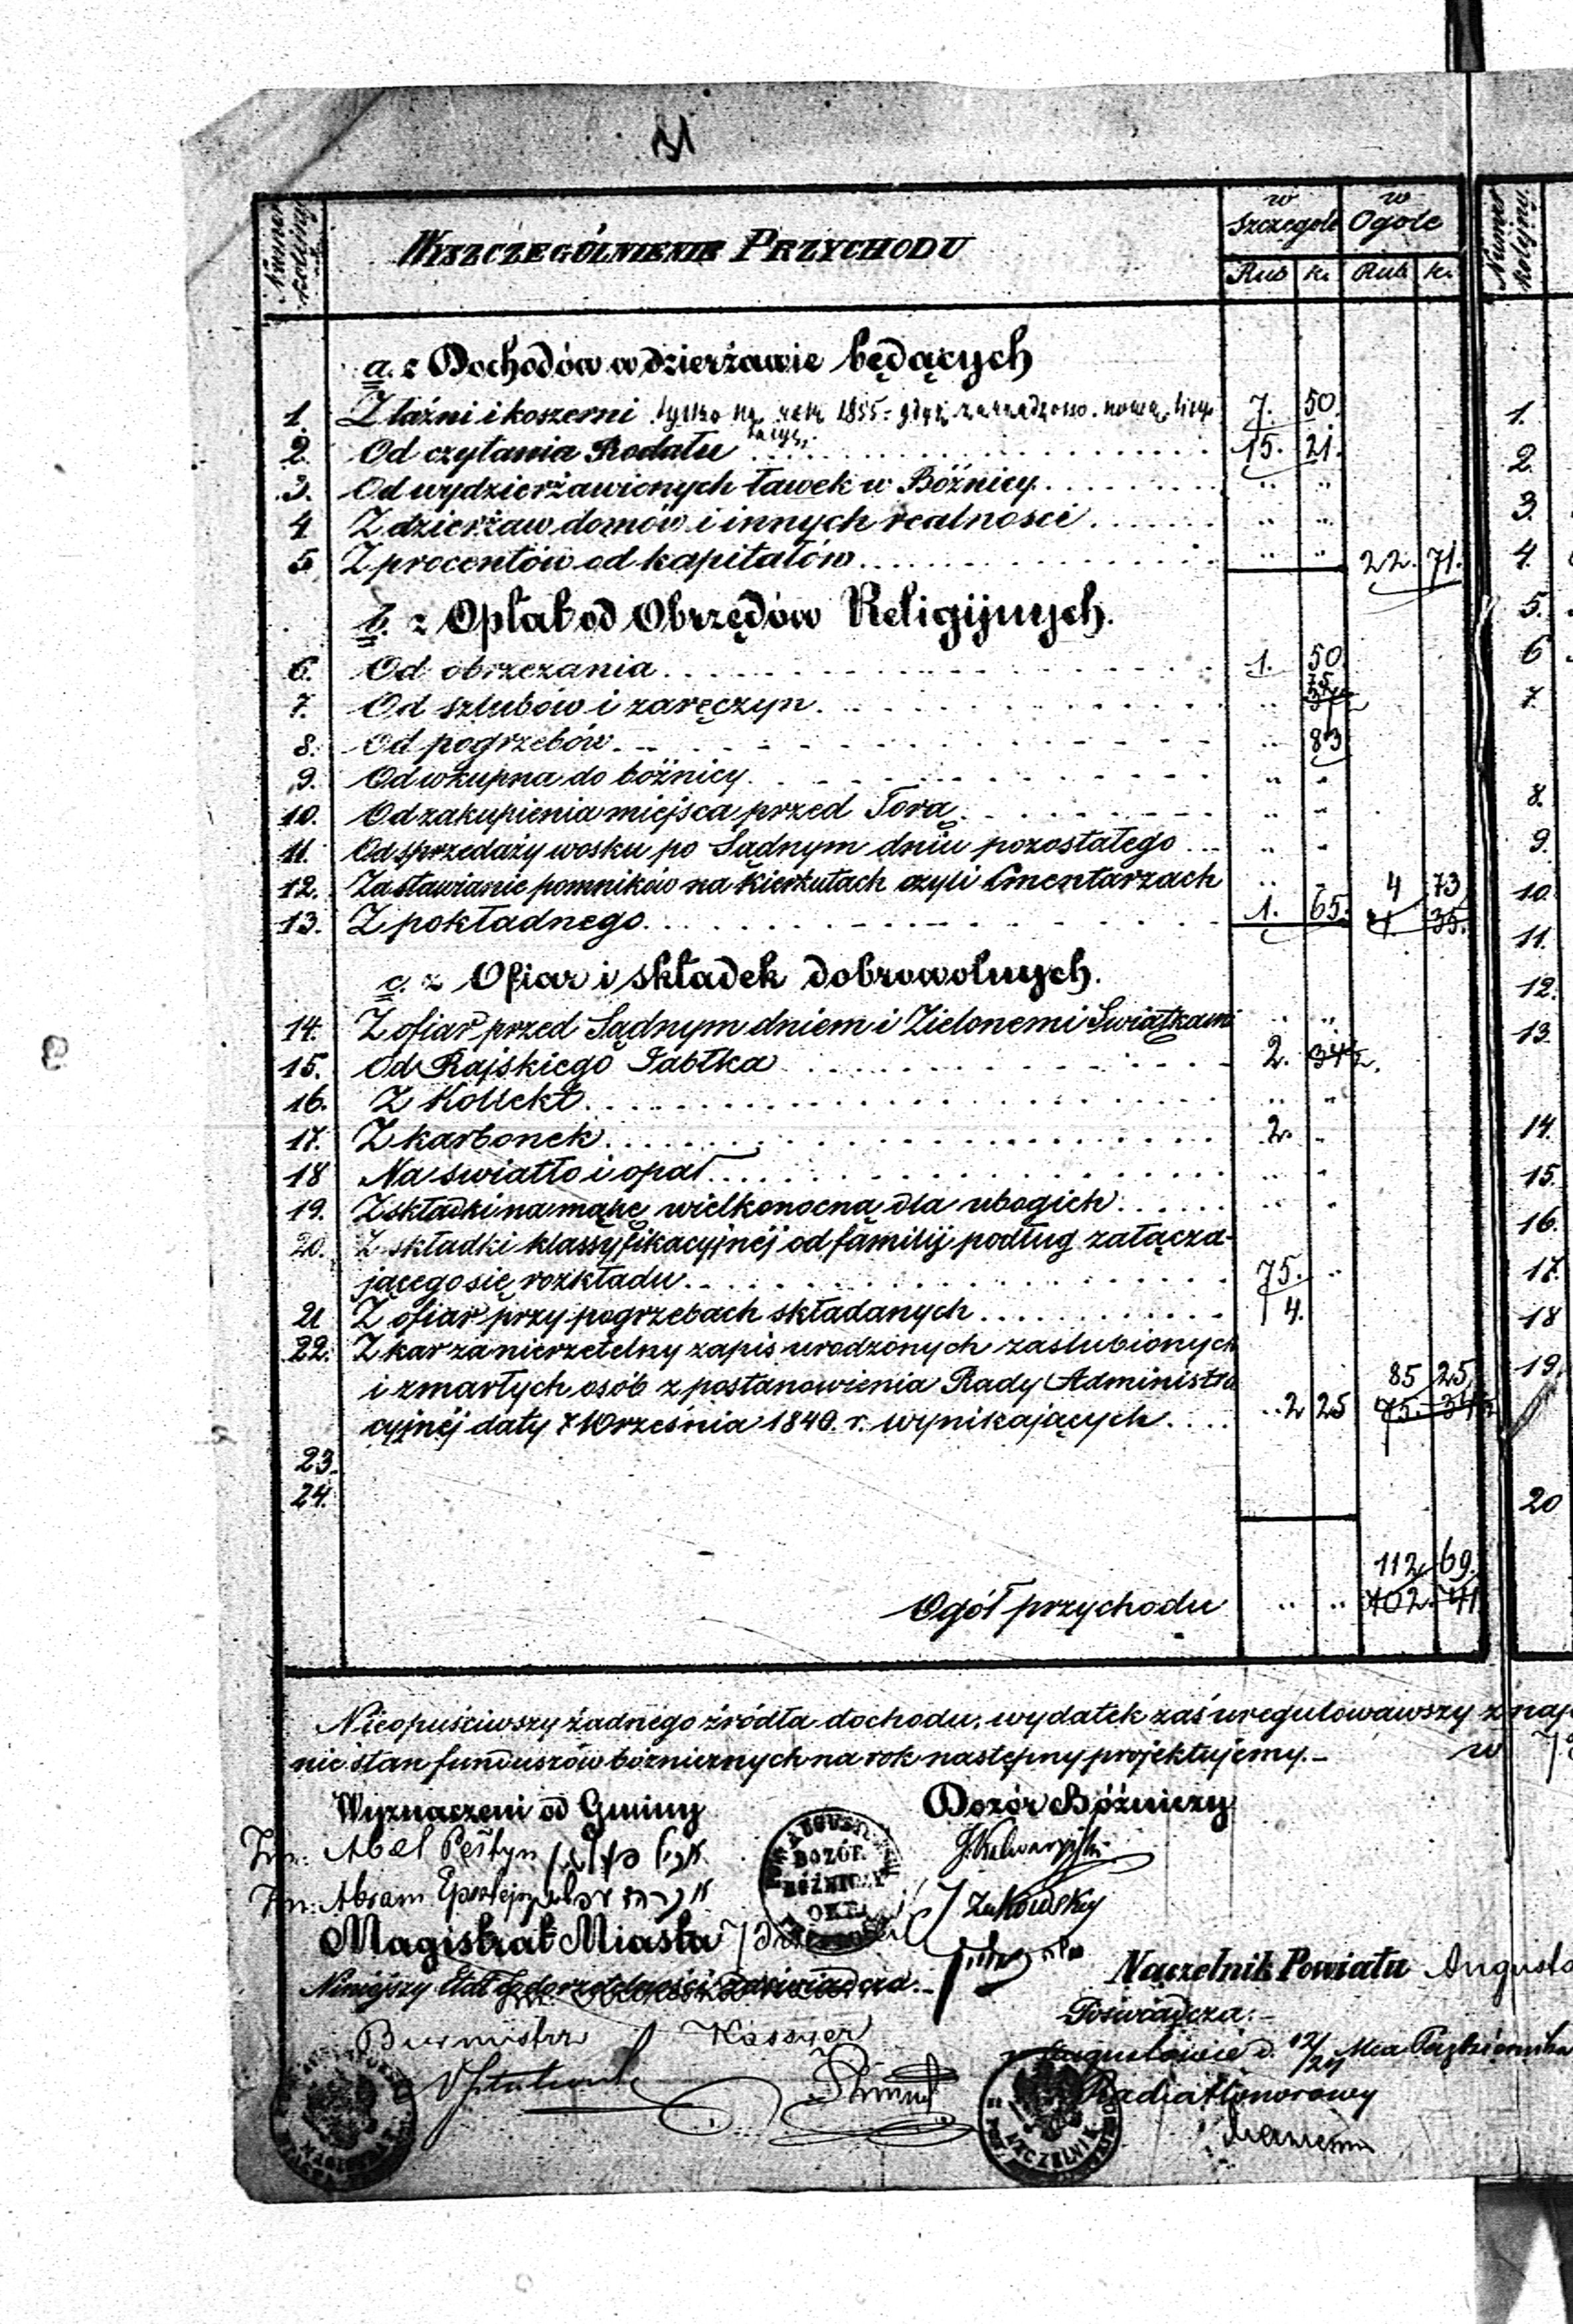 Numer kolejny
WYSZCZEGÓLNIENIE PRZYCHODU
w Szczegole
w Ogole
Rub k. Rub k.
Numer kolejny.
a. z Dochodów w dzierżawie będących
1. Z łaźni i koszerni tylko na rok 1855 gdyż zarządzono nową licy- 7. 50.
tacyę.
2. Od czytania Rodału 15. 21.
3. Od wydzierżawionych ławek w Bóżnicy
4 Z dzierżaw domów i innych realności
5 Z procentów od kapitałów 22. 71.
b. z Opłat od Obrzędów Religijnych.
6. Od obrzezania 1. 50.
7. Od szlubów i zaręczyn 75 37½
8. Od pogrzebów 83
9. Od wkupna do bóżnicy
10. Od zakupienia miejsca przed Torą
11. Od sprzedaży wosku po Sądnym dniu pozostałego
12. Za stawianie pomników na Kierkutach czyli Cmentarzach 4 73
13. Z pokładnego 1. 65. 4. 35.
c. z Ofiar i składek dobrowolnych.
14. Z ofiar przed Sądnym dniem i Zielonemi Swiątkami
15. Od Rajskiego Jabłka 2. 34½.
16. Z Kollekt
17. Z karbonek 2.
18 Na swiatło i opał
19. Z składki na mąkę wielkonocną dla ubogich
20. Z składki klassyfikacyjnéj od familij podług załącza-
jącego się rozkładu 75.
21 Z ofiar przy pogrzebach składanych 4.
22. Z kar za nierzetelny zapis urodzonych zaslubionych
i zmarłych osób z postanowienia Rady Administra 85 25
cyjnéj daty 7 Września 1840. r. wynikających 2 25 75. 34½
23.
24.
112 69.
Ogół przychodu 102. 41
Nieopuściwszy żadnego źródła dochodu, wydatek zaś uregulowawszy z naj
nie stan funduszów bóżnicznych na rok następny projektujemy.– w
Wyznaczeni od Gminy
Dozór Bóżniczy
Abel Pestyn
J. Kalwaryjski
Abram
Zukowsky
DOZÓR BÓŻNICZY OKR.
Magistrat Miasta
Niniejszy Etat
Naczelnik Powiatu Augusto
Poświadcza.–
Burmistrz Kassyer
w Augustowie d. 12/24 Mca Października
Radca Honorowy
NACZELNIK
1.
2.
3.
4.
5.
6
7.
8.
9.
10.
11.
12.
13.
14.
15.
16.
17.
18
19.
20